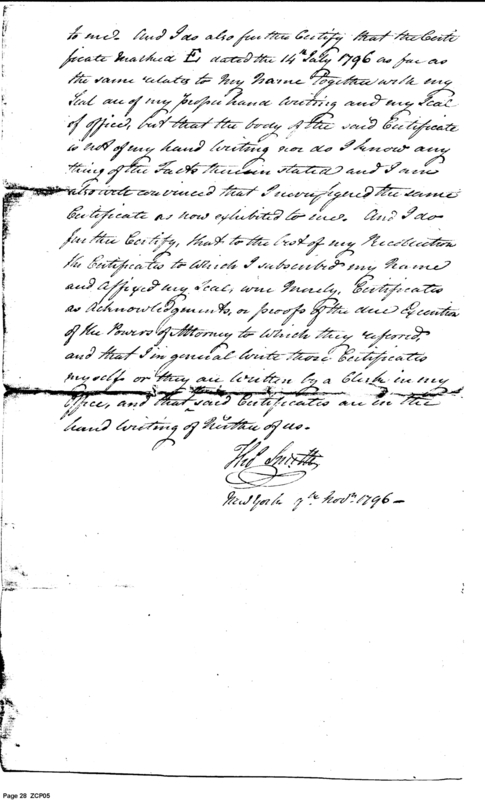 to me. And I do also further Certify that the Certi
ficate Marked E, dated the 14th July 1796 as far as
the same relates to My Name Together with my
Seal are of my proper hand writing and my Seal
of office, but that the body of the said Certificate
is not of my hand writing nor do I know any
thing of the Facts therein stated and I am
also well convinced that I never signed the same
Certificate as now exhibited to me. And I do
further Certify, that to the best of my Recollection
the Certificates to which I subscribed my Name
and Affixed my Seal, were Merely, Certificates
as Acknowledgments, or proofs of the due Execution
of the Powers of Attorney to which they referred,
and that I in general Write those Certificates
myself or they are Written by a Clerk in my
Office, and that said Certificates are in the
hand writing of Neither of us.
Theo Smith
New York 9th Novr. 1796 —
Page 28 ZCP05